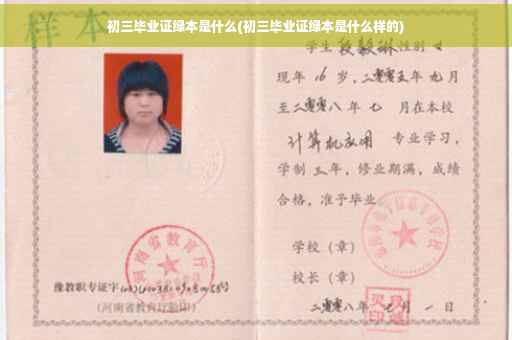 初三毕业证绿本是什么(初三毕业证绿本是什么样的)
样本
学生 段毅琳 性别 女
现年 16 岁，二零零五年 九月
至二零零八年 七 月在本校
计算机应用 专业学习，
学制 三年，修业期满，成绩
合格，准予毕业。
学校（章）
校长（章）
二零零八年 七月 一日
河南省教育厅
豫教职专证字
（河南省教育厅验印）